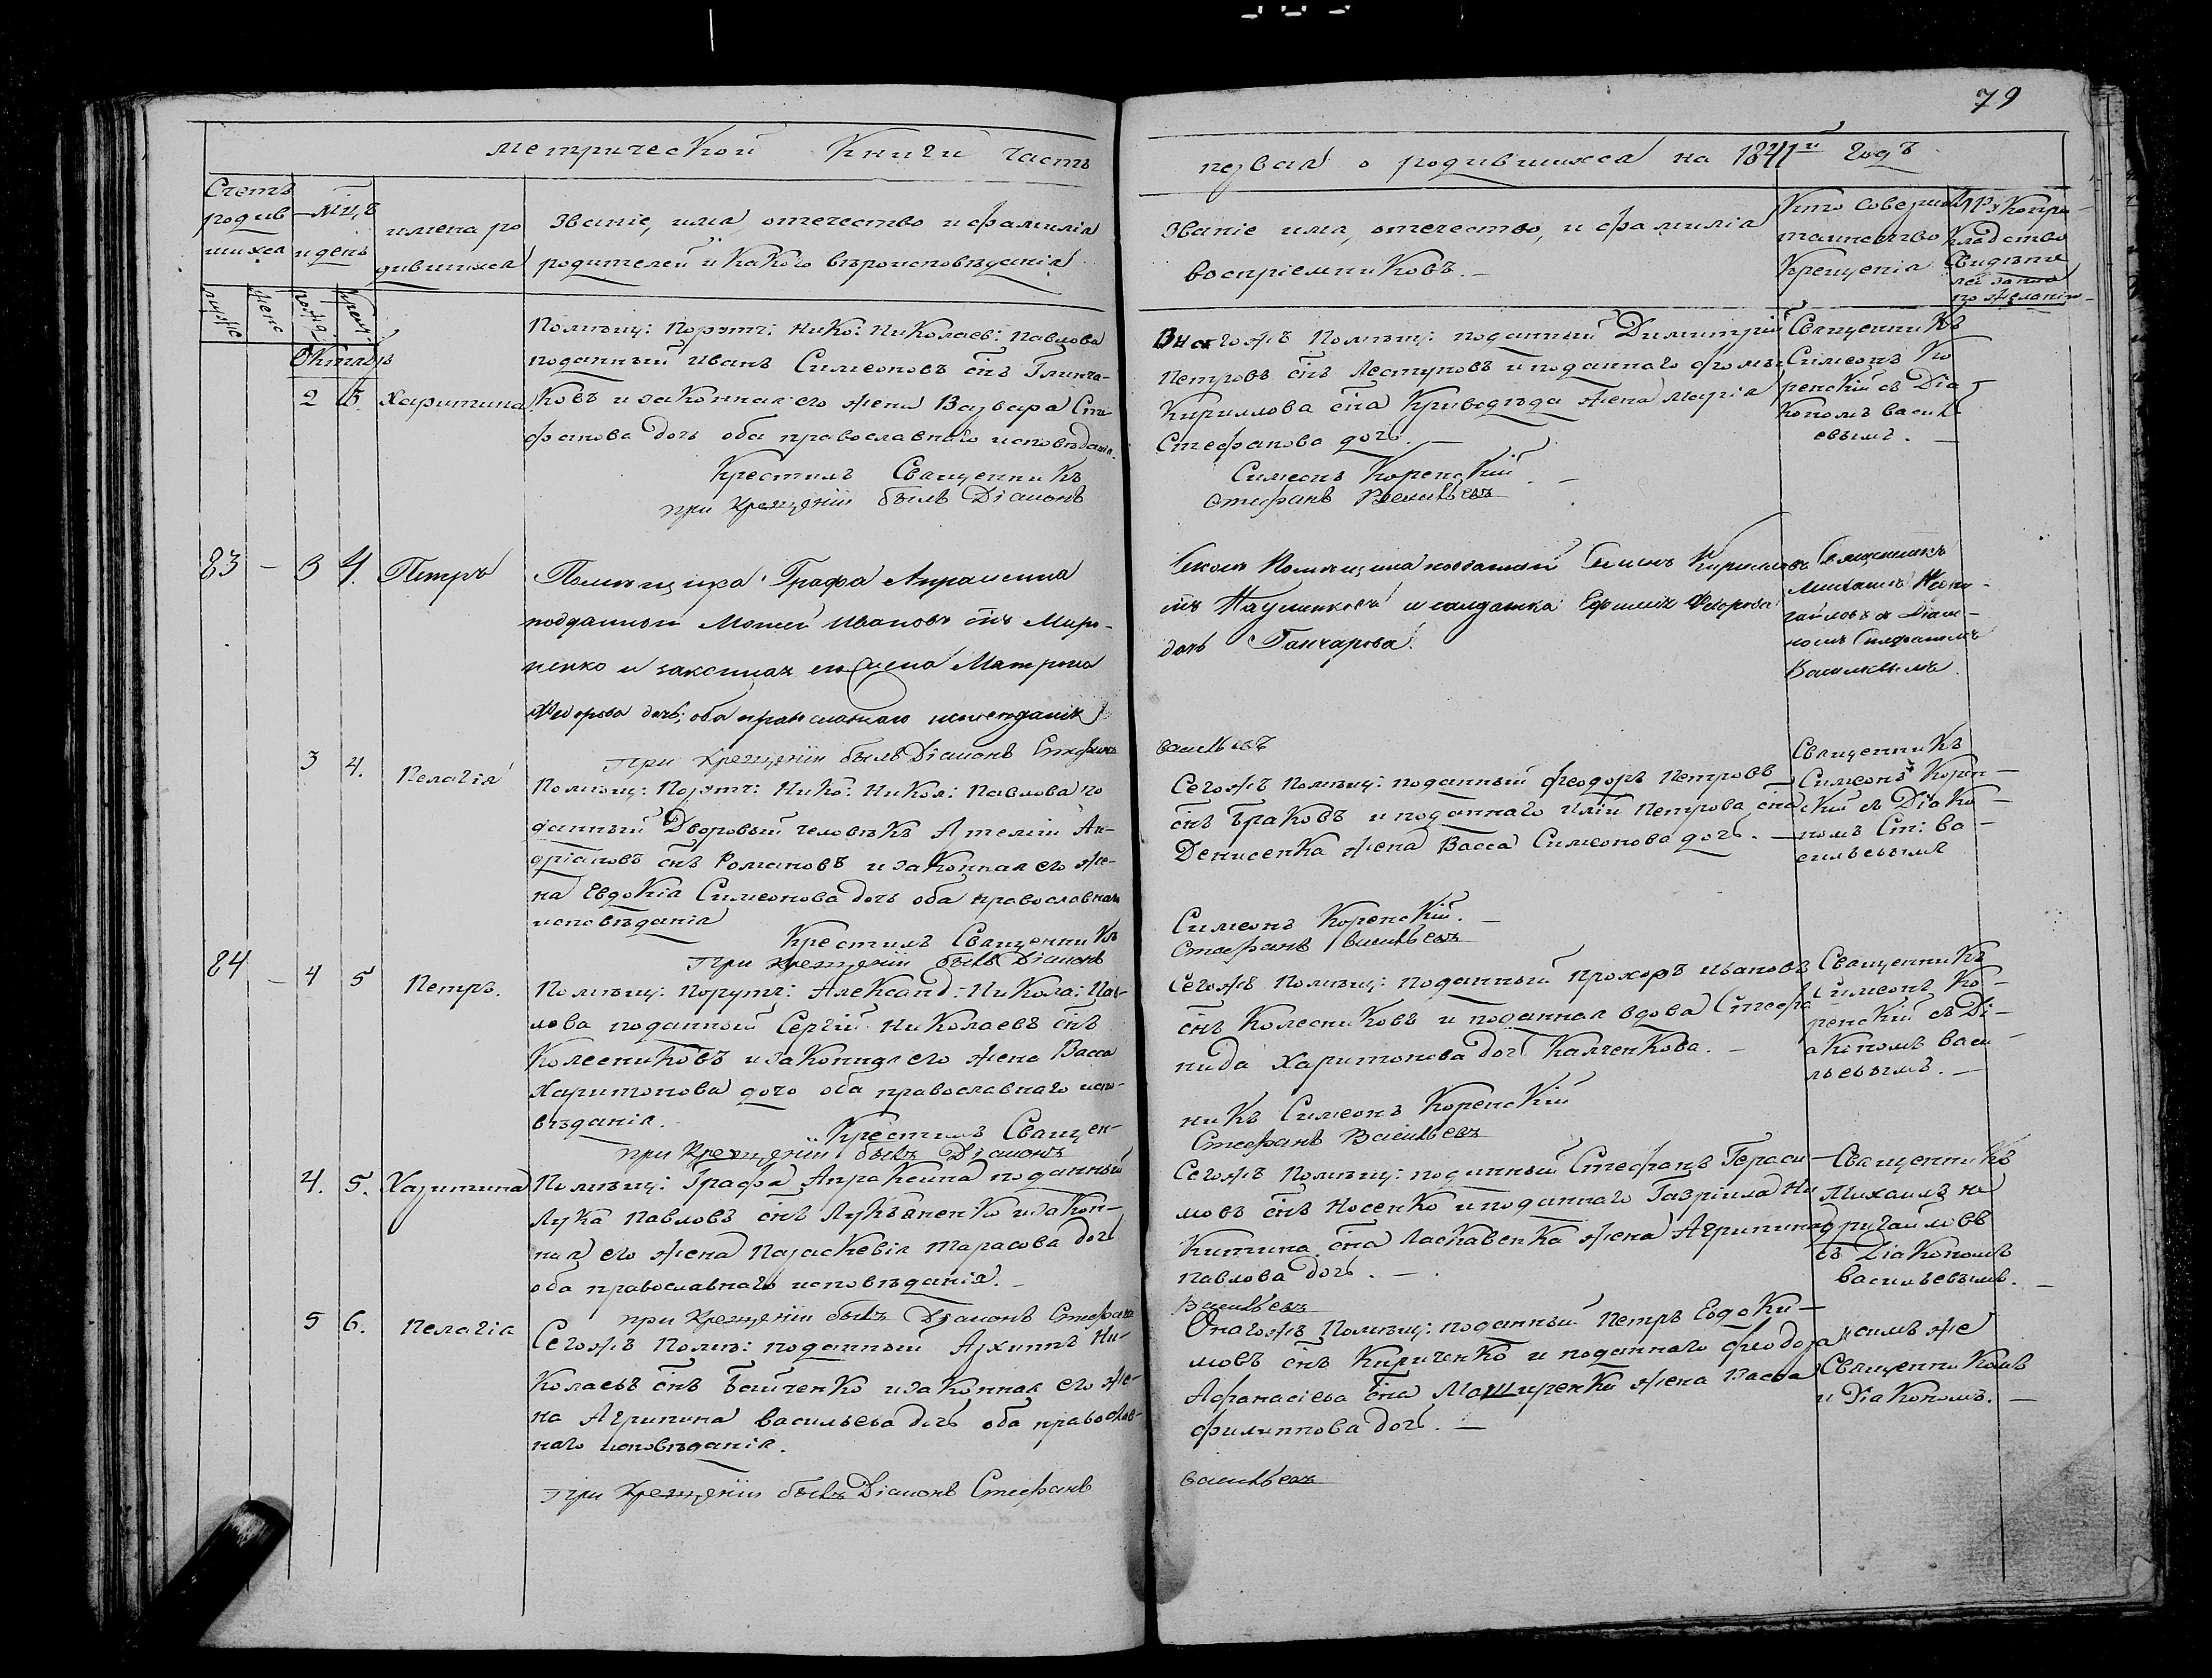 79
метрической Книги часть
первая о родившихся на 1841й Годъ
Счетъ
родив
шихся
Мц,ъ
и день
имена ро
дившихся
Званіе, имя, отечество и фамилія
родителей и Какого вѣроисповѣданія
Званіе имя, отечество, и фамилія
воспріемниковъ.
Кто совершал
таинство
Крещенія
Рукопри
кладство
Свидѣте
лей записи
по желанію
муже
жене
Октябрь
2
Харитина
Помѣщ: Порутч: Нико: Николаев: Павлова
поданный Иванъ Симеоновъ снъ Глинча-
ковъ и законная его жена Варвара Сте
фанова дочь оба православного исповѣданія.
Крестилъ Священникъ
при крещеніи былъ Діаконъ
Онагожъ Помѣщ: поданный Димитрій
Петровъ снъ Лестуновъ и поданнаго Фомы
Кириллова сна Криводѣда жена Марія
Стефанова дочь.
Симеонъ Коренскій.
Стефанъ Васильевъ
Священникъ
Симеонъ Ко
ренскій съ Діа
кономъ Василь
евымъ.
83 - 3 4. Петръ
Помѣщика Графа Апраксина
подданной Мойсей Ивановъ снъ Миро-
ненко и законная его жена Матрона
Федорова дочь; оба православнаго исповеданія
при крещеніи былъ Діаконъ Стефанъ
Секомъ Помѣщика подданой Семенъ Кириловъ
снъ и салдатка Ефимія Федорова
дочь Ганчарова.
Васильевъ
Священникъ
Михаилъ
съ Діако-
номъ Стефаномъ
Васильевымъ.
3 4. Пелагія
Помѣщ: Порутч: Нико: Никол: Павлова по
данный Дворовый человѣкъ Ан-
дріановъ снъ Романовъ и законная его же-
на Евдокія Симеонова дочь оба православнаго
исповѣданія
Крестилъ Священникъ
При крещеніи былъ Діаконъ
Сегожъ Помѣщ: поданный Феодоръ Петровъ
снъ и поданнаго Иліи Петрова сна
Денисенка жена Васса Симеонова дочь.
Симеонъ Коренскій.
Стефанъ Васильевъ
Священникъ
Симеонъ Корен-
скій съ Діако-
номъ Ст: Ва-
сильевымъ
84 - 4 5 Петръ.
Помѣщ: Порутч: Александ: Никола: Пав-
лова поданный Сергій Николаевъ снъ
Колесниковъ и законная его жена Васса
Харитонова дочь оба православнаго испо-
вѣданія.
Крестилъ Священ-
при крещеніи былъ Діаконъ
Сегожъ Помѣщ: поданный Прохоръ Ивановъ
снъ Колесниковъ и поданная вдова Стефа
нида Харитонова дочь Калченкова.
никъ Симеонъ Коренскій
Стефанъ Васильевъ
Священникъ
Симеонъ Ко-
ренскій съ Ді-
акономъ Васи-
льевымъ.
4. 5. Харитина
Помѣщ: Графа Апраксина поданный
Лука Павловъ снъ Лукъяненко и закон-
ная его жена Параскевія Тарасова дочь
оба православнаго исповѣданія.
при крещеніи былъ Діаконъ Стефанъ
Сегожъ Помѣщ: поданный Стефанъ Гераси-
мовъ снъ Носенко и поданнаго Гавріила Ни
китина сна Ласкавенка жена Агрипина
Павлова дочь.
Васильевъ
Священникъ
Михаилъ
съ Діакономъ
Васильевымъ.
5 6. Пелагіа
Сегожъ Помѣ: поданный Архипъ Ни-
колаевъ снъ Бойченко и законная его же-
на Агрипина Васильева дочь оба православ-
наго исповѣданія.
при крещеніи былъ Діаконъ Стефанъ
Онагожъ Помѣщ: поданный Петръ Евдоки-
мовъ снъ Кириченко и поданнаго Феодора
Афанасіева сна Маширенки жена Васса
Филиппова дочь.
Васильевъ
симъ же
Священникомъ
и Діакономъ.